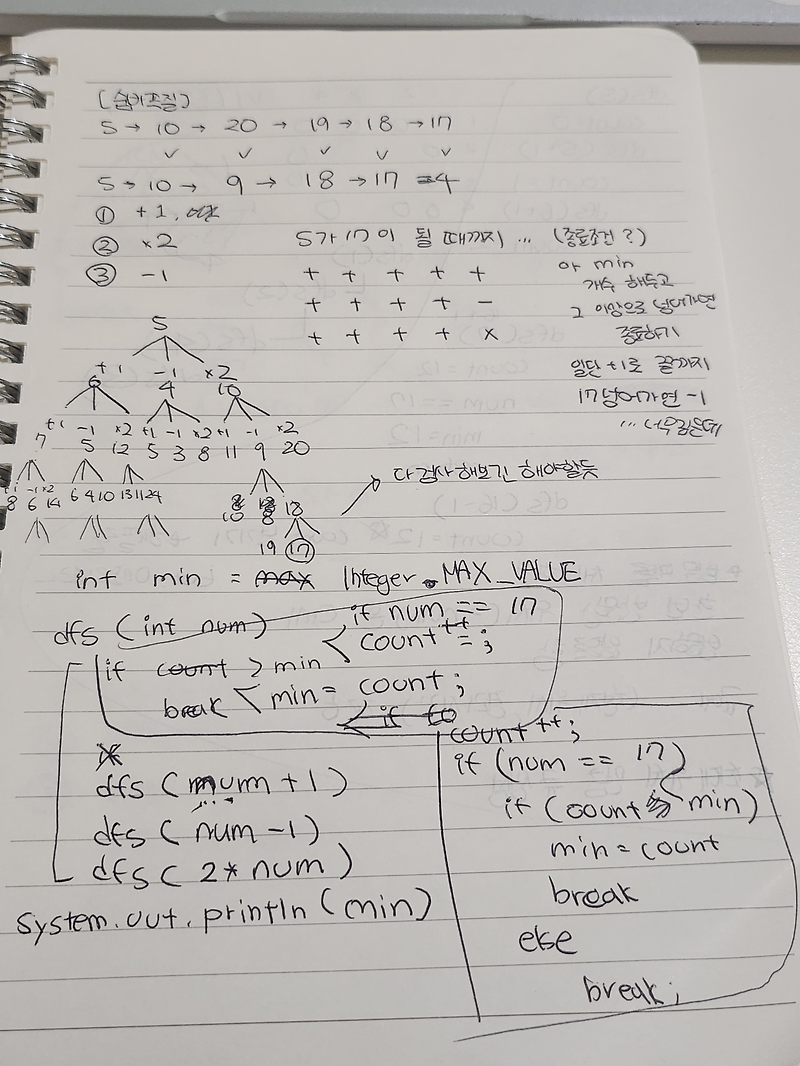 [숨바꼭질]
5 → 10 → 20 → 19 → 18 → 17
✓ ✓ ✓ ✓ ✓
5 → 10 → 9 → 18 → 17 = 4
① +1
② ×2 5가 17이 될 때까지 ... (종료조건?)
③ -1 + + + + + 아 min
개수 해두고
+ + + + - 그 이상으로 넘어가면
+ + + + × 종료하기
5
+1 -1 ×2
6 4 10
일단 +1로 끝까지
17넘어가면 -1
... 너무긴데
+1 -1 ×2 +1 -1 ×2 +1 -1 ×2
7 5 12 5 3 8 11 9 20
다 검사해보긴 해야할듯
+1 -1 ×2
8 6 14 6 4 10 13 11 24 10 8 18
19 17
int min = Integer.MAX_VALUE
dfs (int num) if num == 17
count++;
if count > min
break min = count;
count++;
if (num == 17)
dfs (num+1)
if (count < min)
dfs (num-1)
min = count
dfs ( 2* num )
break
System.out.println (min)
else
break;